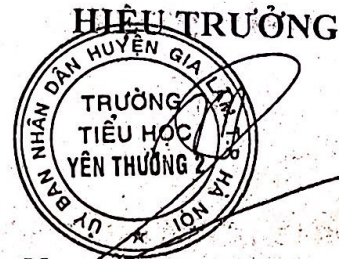 HIỆU TRƯỞNG
ỦY BAN NHÂN DÂN HUYỆN GIA LÂM T.P HÀ NỘI
TRƯỜNG
TIỂU HỌC
YÊN THƯỜNG 2